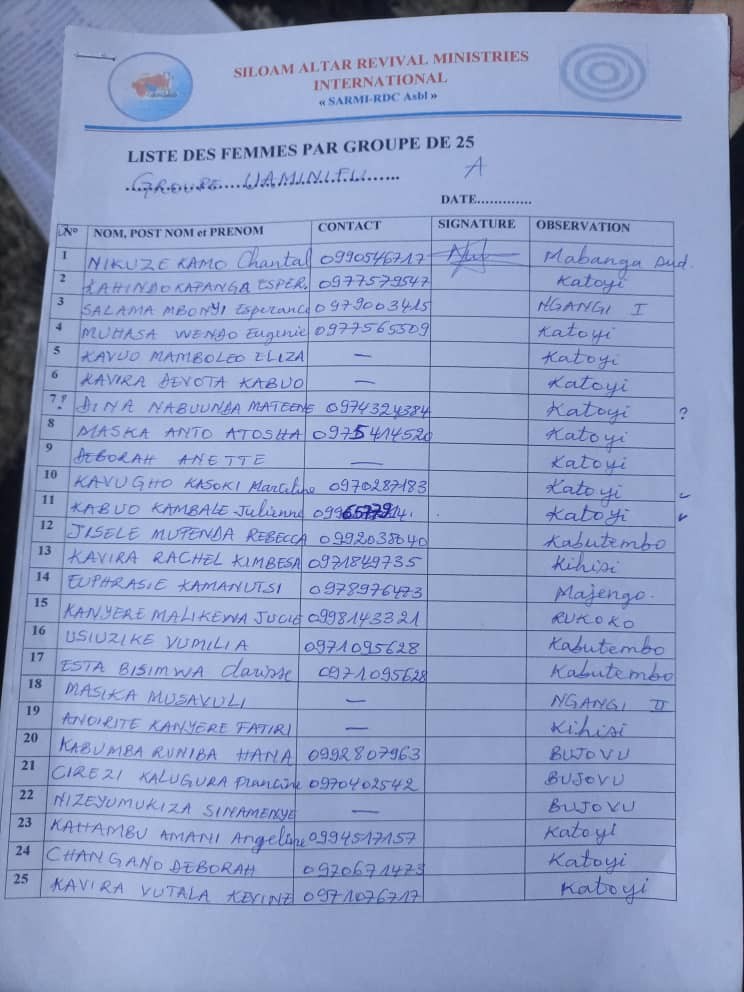 SILOAM ALTAR REVIVAL MINISTRIES
INTERNATIONAL
« SARMI-RDC Asbl »
LISTE DES FEMMES PAR GROUPE DE 25
GROUPE UAMINIFU A
DATE.............
N° NOM, POST NOM et PRENOM CONTACT SIGNATURE OBSERVATION
1 NIKUZE KAMO Chantal 0990546717 Mabanga Sud.
2 KAHINDO KAPANGA ESPER. 0977579547 Katoyi
3 SALAMA MBONYI Esperance 0979003415 NGANGI I
4 MUHASA WENDO Eugenie 0977565509 Katoyi
5 KAVUO MAMBOLEO ELIZA — Katoyi
6 KAVIRA DEVOTA KABUO — Katoyi
7 ? DINA NABUUNDA MATEENE 0974324384 Katoyi ?
8 MASKA ANTO ATOSHA 0975414520 Katoyi
9 DEBORAH ANETTE — Katoyi
10 KAVUGHO KASOKI Marceline 0970287183 Katoyi
11 KABUO KAMBALE Julienne Katoyi
12 JISELE MUPENDA REBECCA 0992038040 Kabutembo
13 KAVIRA RACHEL KIMBESA 0971849735 Kihisi
14 EUPHRASIE KAMANUTSI 0978976473 Majengo.
15 KANYERE MALIKEWA JUCIE 0998143321 RUKOKO
16 USIUZIKE VUMILIA 0971095628 Kabutembo
17 ESTA BISIMWA Clarisse 0971095628 Kabutembo
18 MASIKA MUSAVULI — NGANGI II
19 ANOIRITE KANYERE FATIRI — Kihisi
20 KABUMBA RUNIBA HANA 0992807963 BUJOVU
21 CIREZI KALUGURA Francine 0970402542 BUJOVU
22 NIZEYUMUKIZA SINAMENYE — BUJOVU
23 KAHAMBU AMANI Angeline 0994517157 Katoyi
24 CHANGANO DEBORAH 0970671473 Katoyi
25 KAVIRA VUTALA KEVINE 0971076717 Katoyi